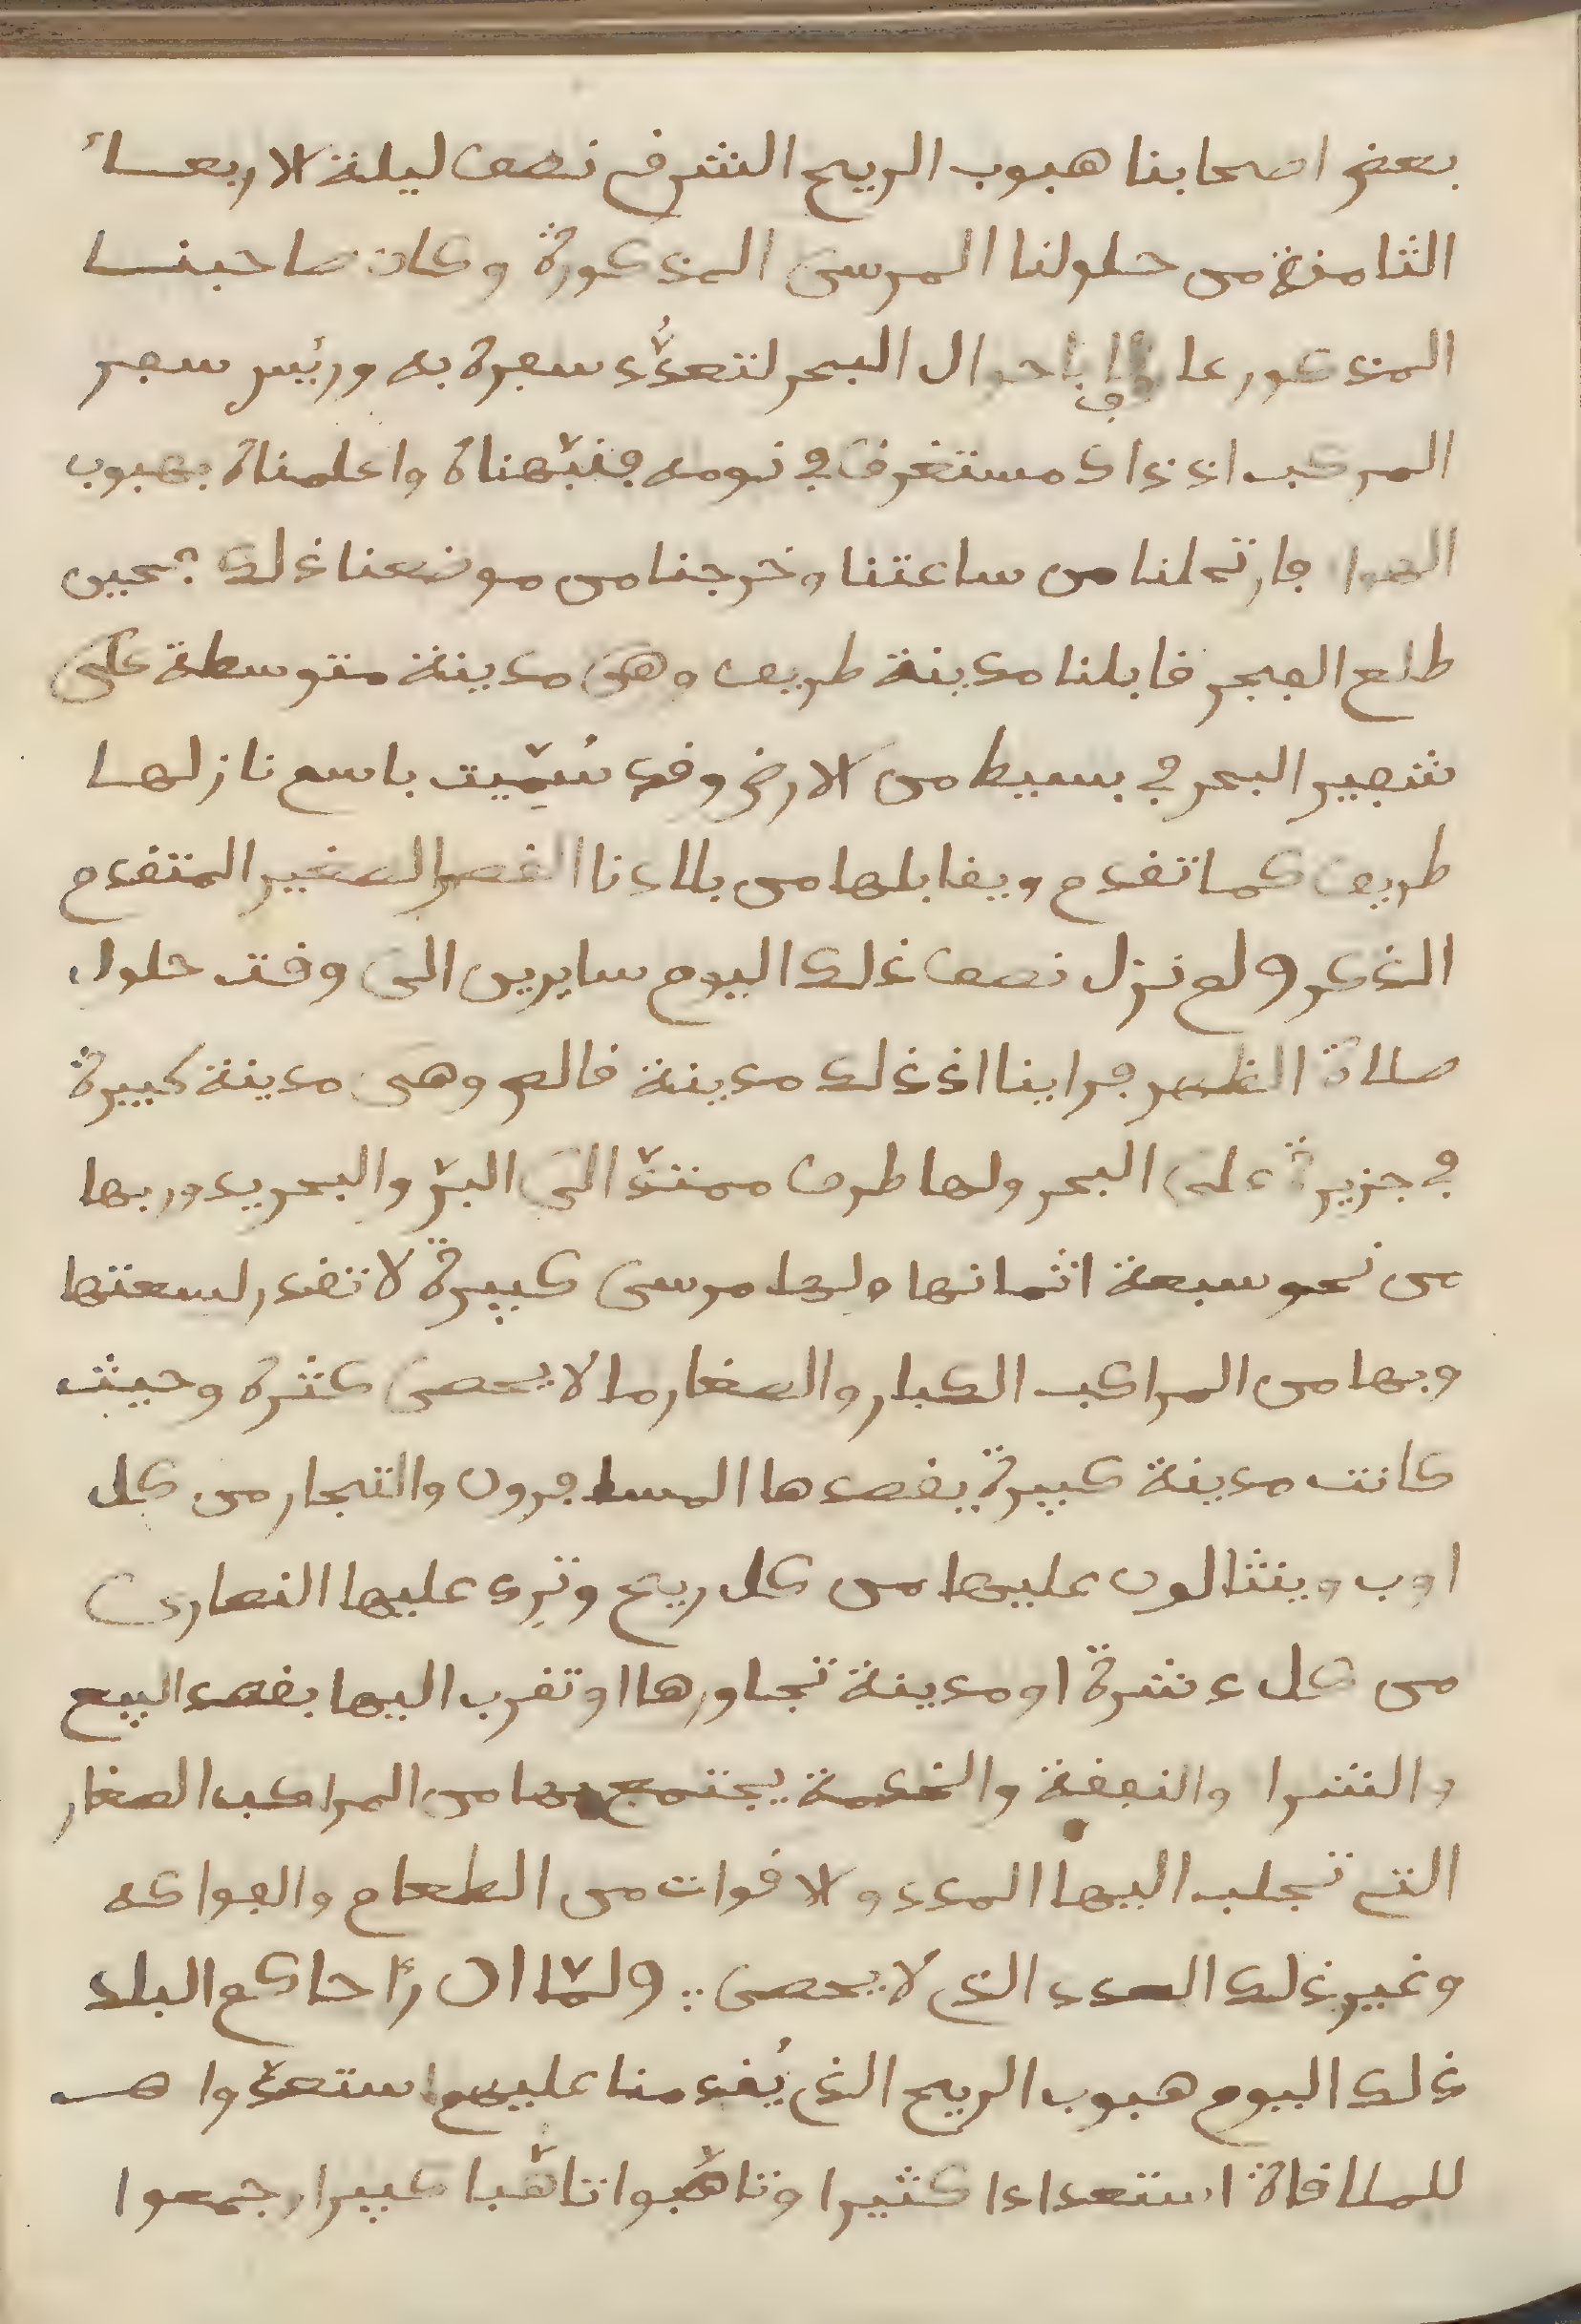 بعض اصحابنا هبوب الريح الشرقي نصف ليلة الاربعاء
الثامنة من حلولنا المرسى المذكورة وكان صاحبنا
المذكور عارفا باحوال البحر لتعدّد سفره به ورئيس سفر
المركب اذ ذاك مستغرق في نومه فنبّهناه واعلمناه بهبوب
الهوا فارتحلنا من ساعتنا وخرجنا من موضعنا ذلك فحين
طلع الفجر قابلنا مدينة طريف وهى مدينة متوسطة على
شفير البحر في بسيط من الارض وقد سُمّيت باسم نازلها
طريف كما تقدم ويقابلها من بلادنا القصر الصغير المتقدم
الذكر ولم نزل نصف ذلك اليوم سايرين الى وقت حلول
صلاة الظهر فراينا اذ ذلك مدينة قالص وهى مدينة كبيرة
في جزيرة على البحر ولها طرف ممتدّ الى البرّ والبحر يدور بها
من نحو سبعة اثمانها ولها مرسى كبيرة لا تقدر لسعتها
وبها من المراكب الكبار والصغار ما لا يحصى كثرة وحيث
كانت مدينة كبيرة يقصدها المسافرون والتجار من كل
اوب وينثالون عليها من كل ريح وترد عليها النصارى
من كل دشرة او مدينة تجاورها او تقرب اليها بقصد البيع
والشرا والنفقة والخدمة يجتمع بها من المراكب الصغار
التي تجلب اليها المدد والاقوات من الطعام والفواكه
وغير ذلك العدد الذي لا يحصى ؞ ولمّا ان رأ حاكم البلد
ذلك اليوم هبوب الريح الذي يُقدمنا عليهم استعدّوا هـ
للملاقاة استعدادا كثيرا وتاهّبوا تاهّبا كبيرا وجمعوا